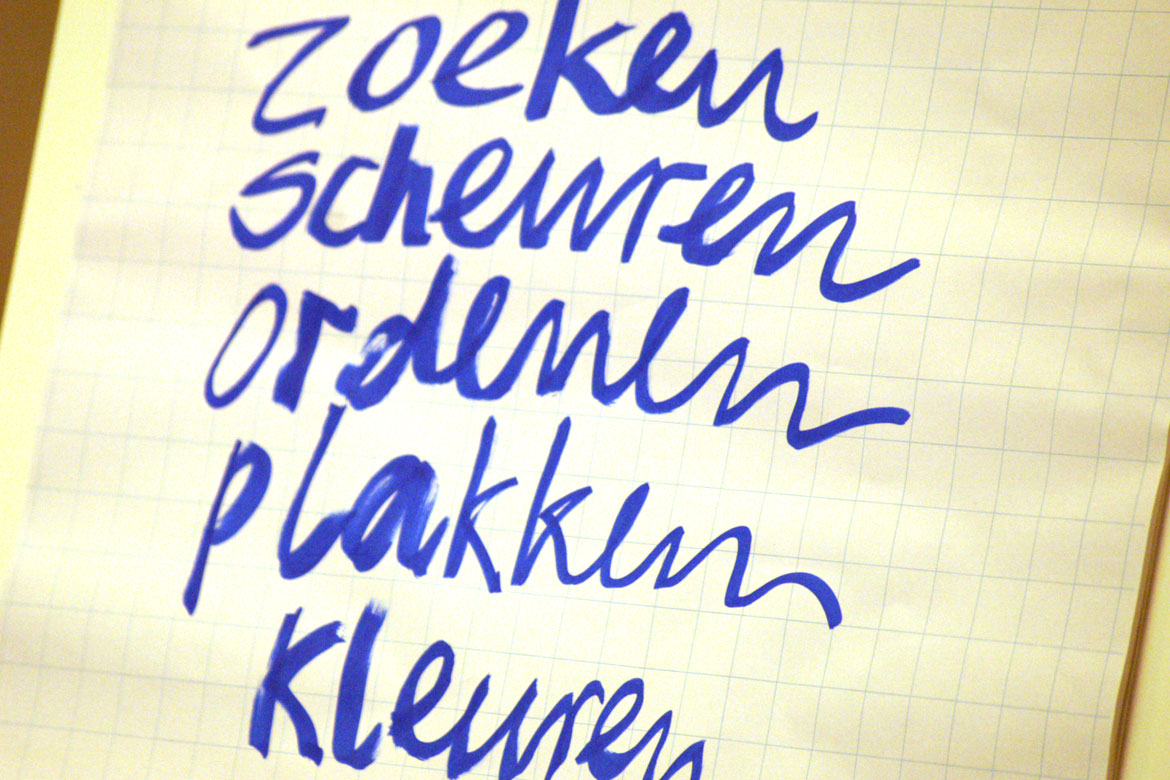 zoeken
scheuren
ordenen
plakken
kleuren